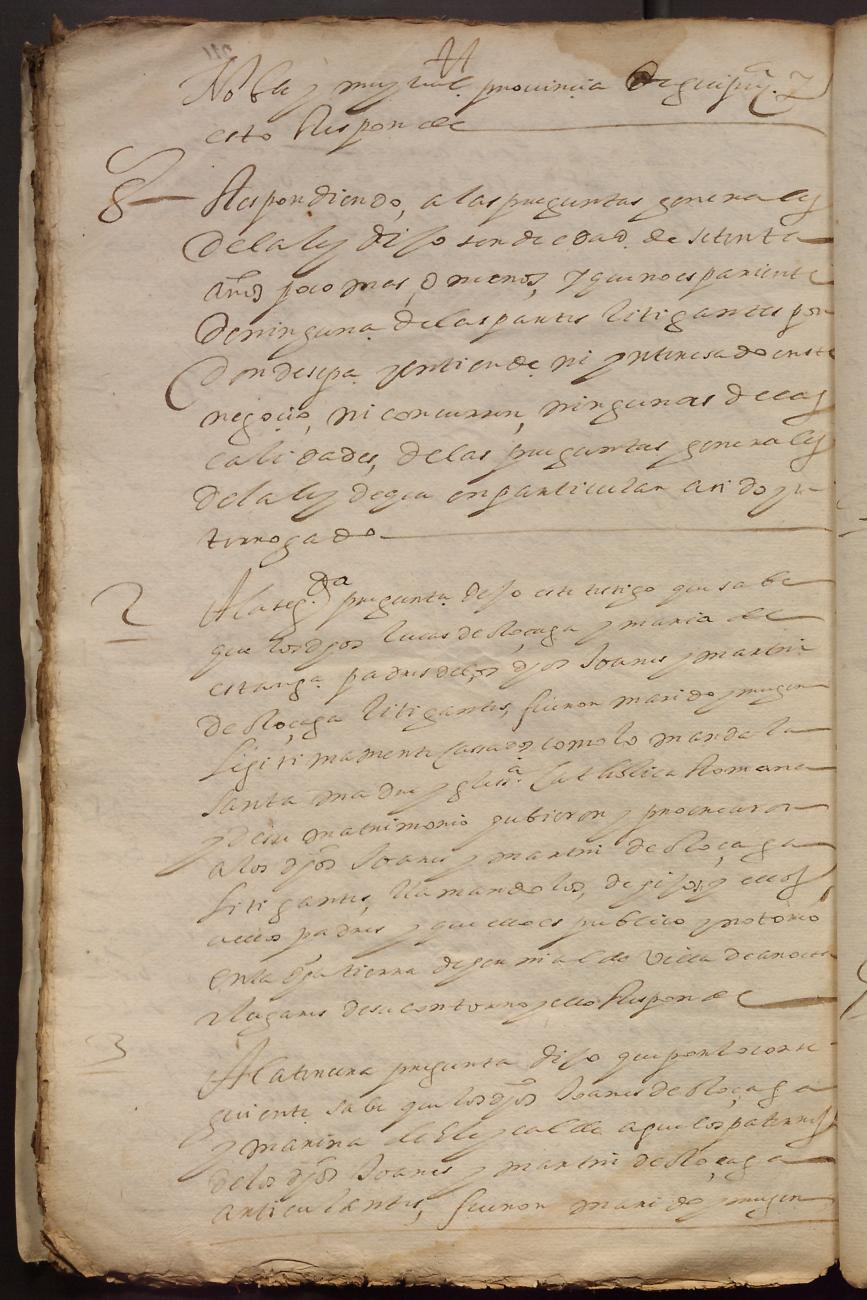 Noble y muy leal provincia de guipuzª. y
esto Responde
g Respondiendo, a las preguntas generales
de la ley dijo ser de edad de setenta
años poco mas, o menos, y que no es pariente
de ninguna de las partes litigantes por
donde sepa y entiende ni ynteresado en este
negocio, ni concurren, ningunas de las
calidades, de las preguntas generales
de la ley de que en particular a sido yn
terrogado
2 A la segda pregunta dijo este testigo que sabe
que los dhos lucas de y maria de
padres de los dhos Joanes y martin
de litigantes, fueron marido y muger
legitimamente cassados como lo manda la
santa madre yglesiª Catholica Romana
y de su matrimonio hubieron y procrearon
a los dhos Joanes y martin de
litigantes, llamandolos, de hijos, y ellos
a ellos padres y que ello es publico y notorio
en la dha tierra de y villa de
y lugares de su contorno y ello Responde
3 A la tercera pregunta dijo que por lo consi
guiente sabe que los dhos Joanes de
y marina de aguelos paternos
de los dhos Joanes y martin de
articulantes, fueron marido y muger